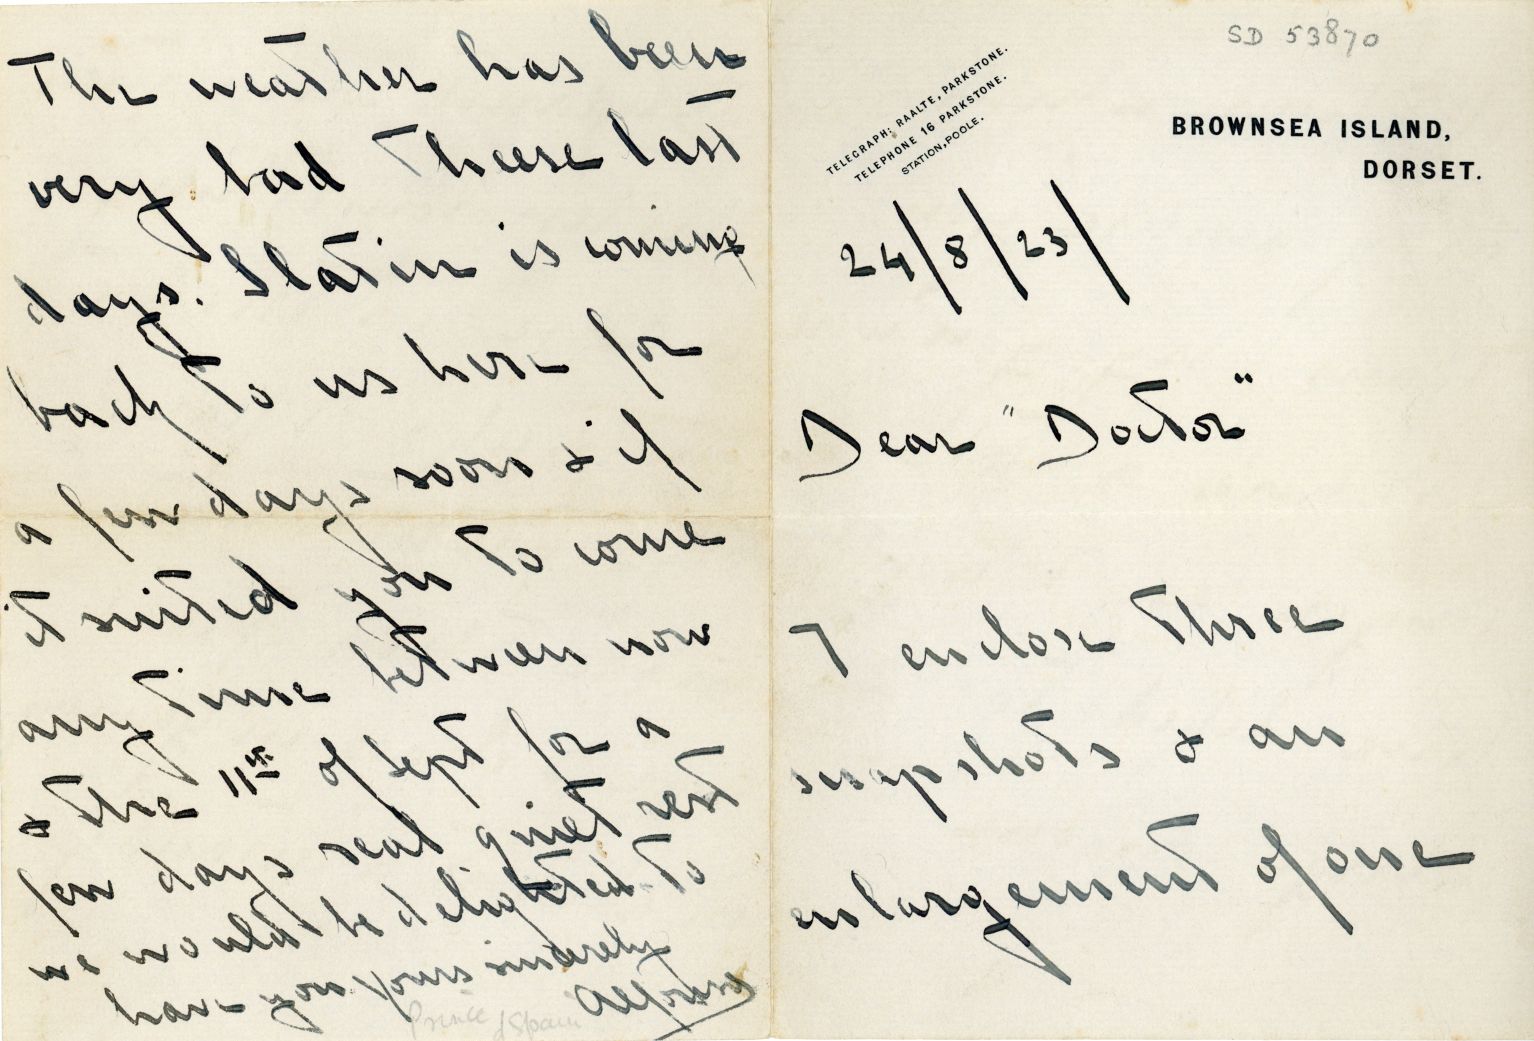 SD 53870
TELEGRAPH; RAALTE, PARKSTONE.
TELEPHONE 16 PARKSTONE.
STATION, POOLE.
BROWNSEA ISLAND,
DORSET.
24/8/23/
Dear "Doctor"
I enclose three
snapshots & an
enlargement of one
The weather has been
very bad theese last
days. Slatin is coming
back to us here for
a few days soon & if
it suited you to come
any time between now
& the 11th of Sept for a
few days real quiet rest
we would be delighted to
have you yours sincerely
Alfonso
Prince of Spain